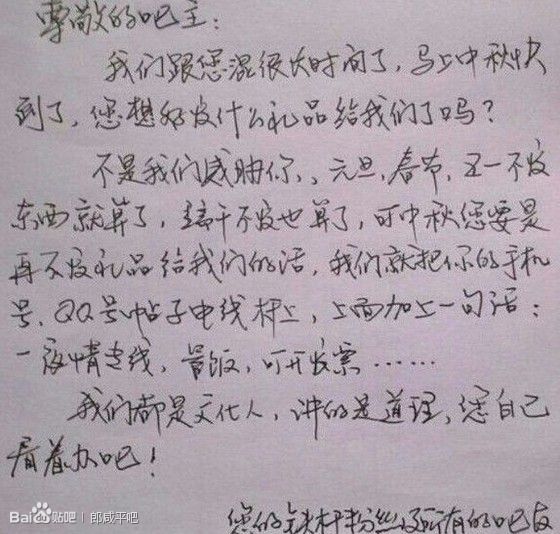 尊敬的吧主:
我们跟您混很久时间了,马上中秋快
到了,您想好发什么礼品给我们了吗?
不是我们威胁你、,元旦,春节,五一不发
东西就算了,端午不发也算了,可中秋您要是
再不发礼品给我们的话,我们就把你的手机
号、QQ号帖子电线杆上,上面加上一句话:
一夜情专线,管饭,可开发票……
我们都是文化人,讲的是道理,您自己
看着办吧!
您的铁杆粉丝及所有的吧友
Baidu贴吧 | 郎咸平吧